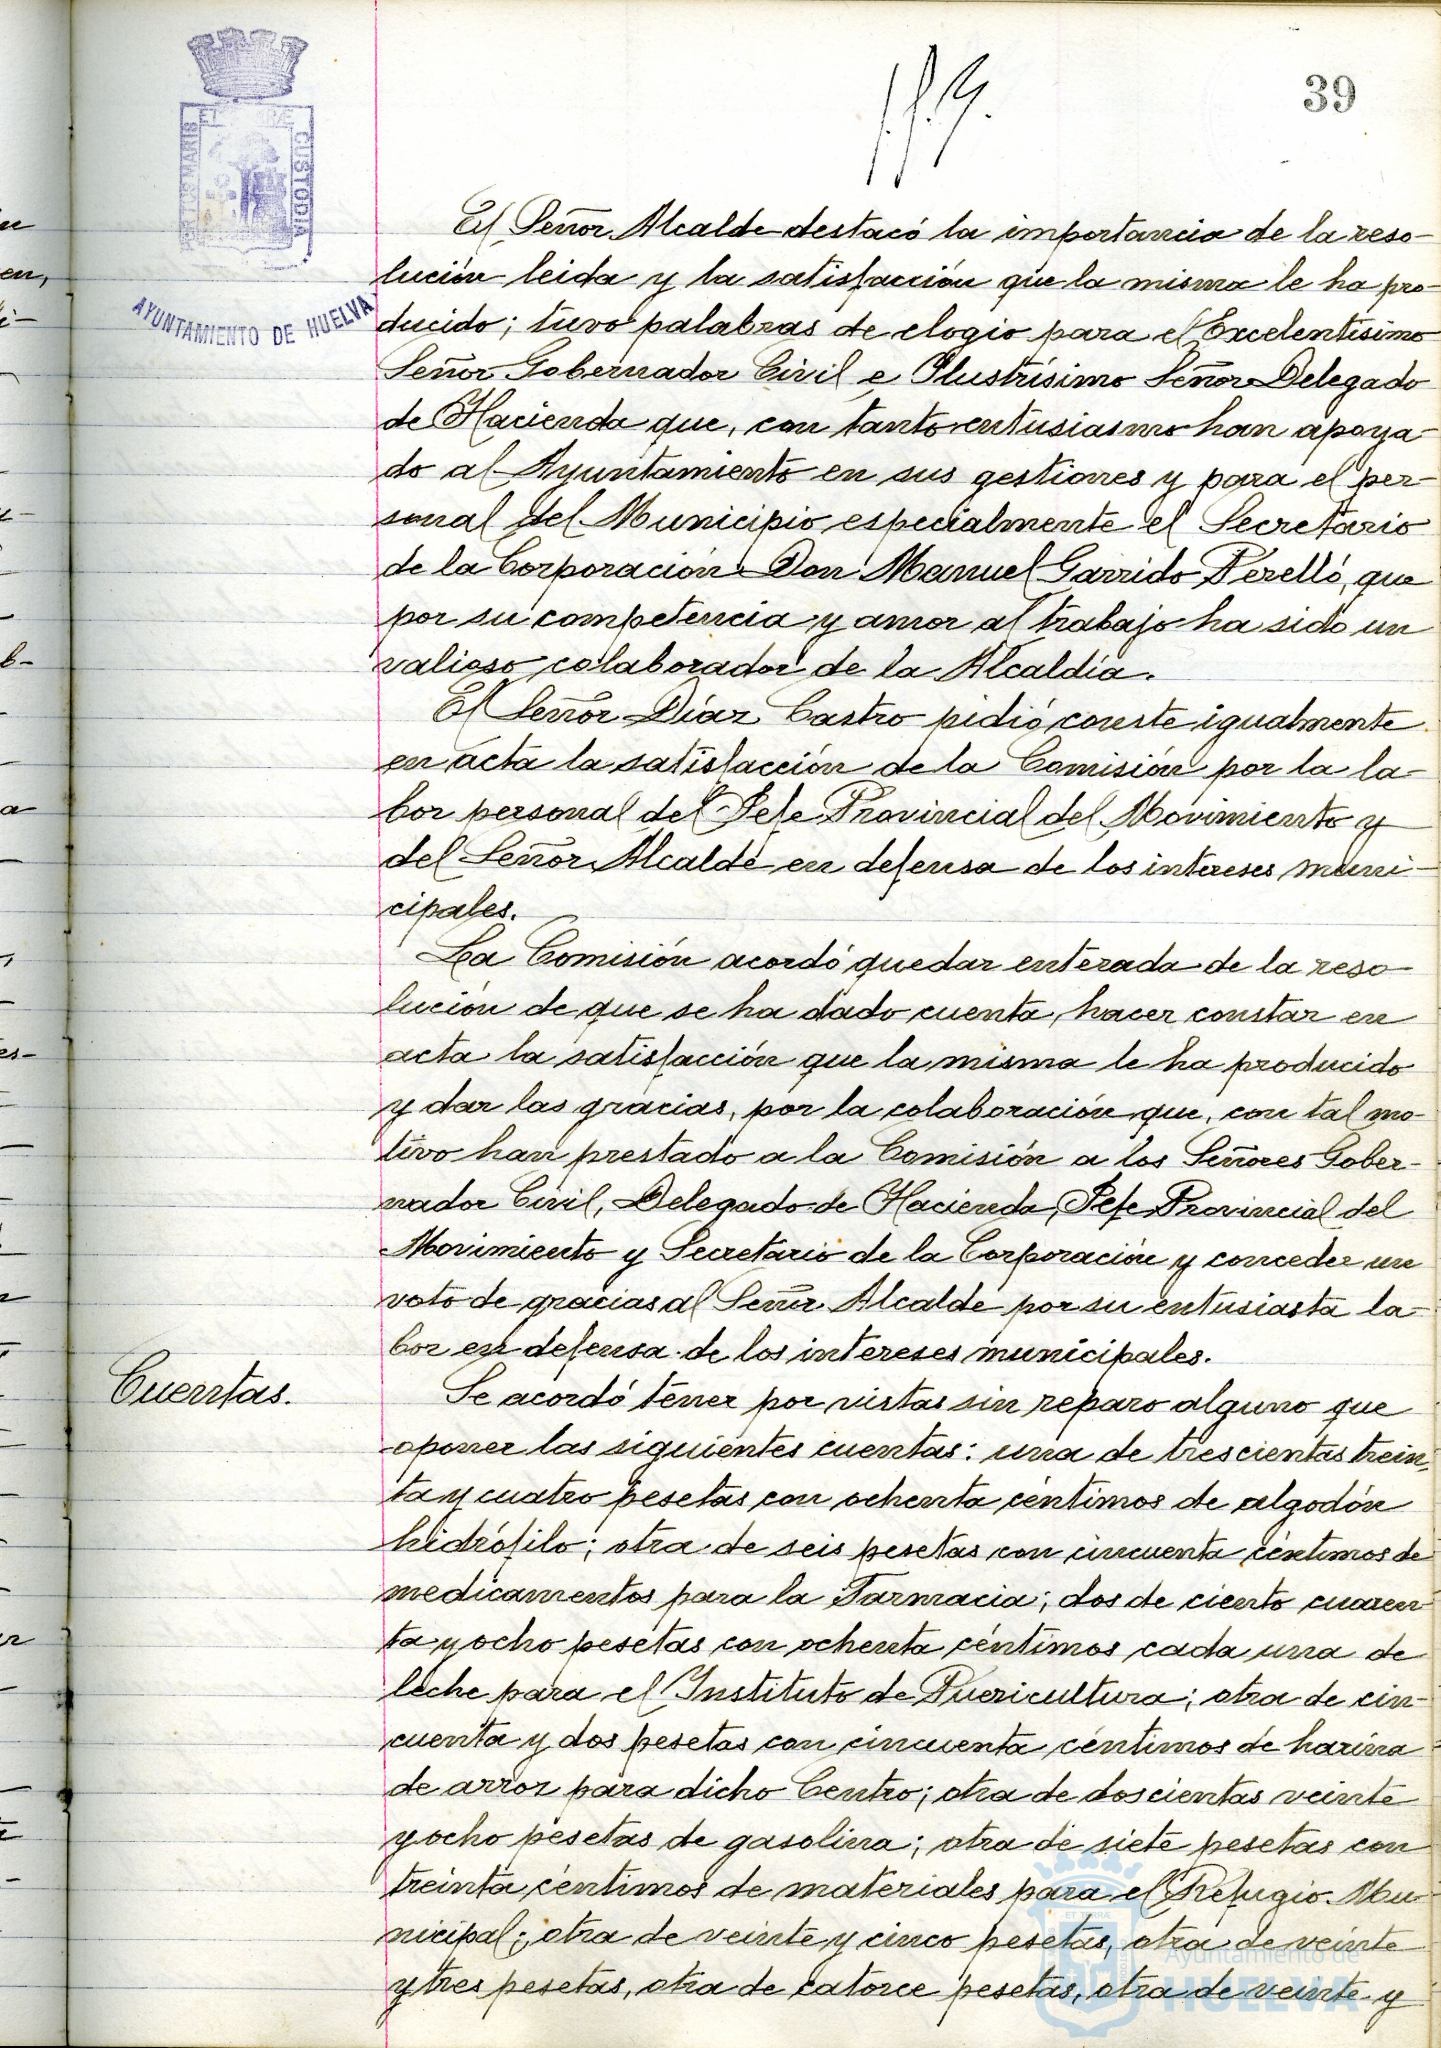 39
ET TERRÆ
CUSTODIA
PORTUS MARIS
AYUNTAMIENTO DE HUELVA
El Señor Alcalde destacó la importancia de la reso-
lución leida y la satisfacción que la misma le ha pro-
ducido; tuvo palabras de elogio para el Excelentísimo
Señor Gobernador Civil e Ilustrísimo Señor Delegado
de Hacienda que, con tanto entusiasmo han apoya-
do al Ayuntamiento en sus gestiones y para el per-
sonal del Municipio especialmente el Secretario
de la Corporación Don Manuel Garrido Perelló, que
por su competencia y amor al trabajo ha sido un
valioso colaborador de la Alcaldía.
El Señor Díaz Castro pidió conste igualmente
en acta la satisfacción de la Comisión por la la-
bor personal del Jefe Provincial del Movimiento y
del Señor Alcalde en defensa de los intereses muni-
cipales.
La Comisión acordó quedar enterada de la reso-
lución de que se ha dado cuenta, hacer constar en
acta la satisfacción que la misma le ha producido
y dar las gracias, por la colaboración que, con tal mo-
tivo han prestado a la Comisión a los Señores Gober-
nador Civil, Delegado de Hacienda, Jefe Provincial del
Movimiento y Secretario de la Corporación y conceder un
voto de gracias al Señor Alcalde por su entusiasta la-
bor en defensa de los intereses municipales.
Cuentas.
Se acordó tener por vistas sin reparo alguno que
oponer las siguientes cuentas: una de trescientas trein-
ta y cuatro pesetas con ochenta céntimos de algodón
hidrófilo; otra de seis pesetas con cincuenta céntimos de
medicamentos para la Farmacia; dos de ciento cuaren-
ta y ocho pesetas con ochenta céntimos cada una de
leche para el Instituto de Puericultura; otra de cin-
cuenta y dos pesetas con cincuenta céntimos de harina
de arroz para dicho Centro; otra de doscientas veinte
y ocho pesetas de gasolina; otra de siete pesetas con
treinta céntimos de materiales para el Refugio Mu-
nicipal; otra de veinte y cinco pesetas, otra de veinte
y tres pesetas, otra de catorce pesetas, otra de veinte y
Ayuntamiento de
HUELVA